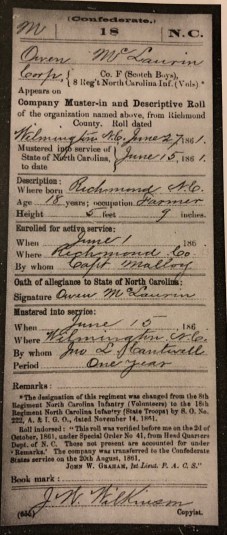 (Confederate.)
M 18 N.C.
Owen McLaurin
Corp, Co. F (Scotch Boys),
8 Reg't North Carolina Inf. (Vols)*
Appears on
Company Muster-in and Descriptive Roll
of the organization named above, from Richmond
County. Roll dated
Wilmington N.C. June 27 1861.
Mustered into service of
State of North Carolina, June 15, 1861.
to date
Description:
Where born Richmond N.C.
Age 18 years; occupation Farmer
Height 5 feet 9 inches.
Enrolled for active service:
When June 1 186
Where Richmond Co
By whom Capt Malloy
Oath of allegiance to State of North Carolina:
Signature Owen McLaurin
Mustered into service:
When June 15, 186
Where Wilmington N.C.
By whom Jno L Cantwell
Period One Year
Remarks:
*The designation of this regiment was changed from the 8th
Regiment North Carolina Infantry (Volunteers) to the 18th
Regiment North Carolina Infantry (State Troops) by S. O. No.
222, A. & I. G. O., dated November 14, 1861.
Roll indorsed: "This roll was verified before me on the 2d of
October, 1861, under Special Order No. 41, from Head Quarters
Dept. of N. C. Those not present are accounted for under
'Remarks.' The company was transferred to the Confederate
States service on the 20th August, 1861.
JOHN W. GRAHAM, 1st Lieut. P. A. C. S."
Book mark:
J. W. Wilkinson
Copyist.